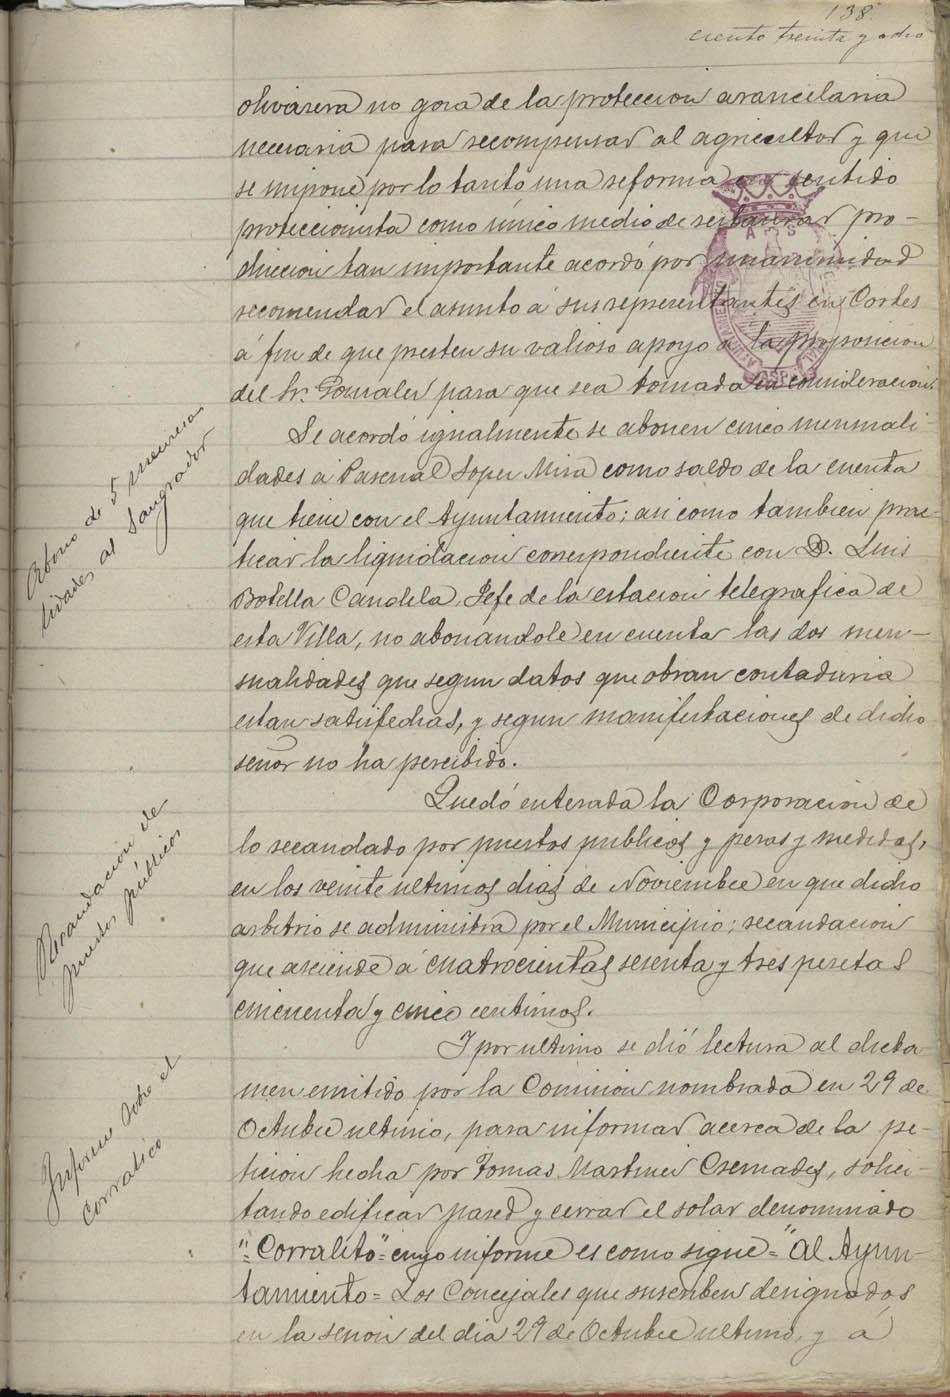 138.
ciento treinta y ocho
olivarera no goza de la proteccion arancelaria
necesaria para recompensar al agricultor y que
se impone por lo tanto una reforma en sentido
proteccionista como único medio de restaurar pro-
duccion tan importante acordó por unanimidad
recomendar el asunto á sus representantes en Cortes
á fin de que presten su valioso apoyo á la proposicion
del Sr. Gonzalez para que sea tomada en consideracion.
Abono de 5 mensua
lidades al Sangrador
Se acordó igualmente se abonen cinco mensuali-
dades á Pascual Soper Mira como saldo de la cuenta
que tiene con el Ayuntamiento; asi como tambien prac-
ticar la liquidacion correspondiente con D. Luis
Botella Candela, Jefe de la estacion telegrafica de
esta Villa, no abonandole en cuenta las dos men-
sualidades que segun datos que obran contaduria
estan satisfechas, y segun manifestaciones de dicho
señor no ha percibido.
Recaudacion de
puestos públicos
Quedó enterada la Corporacion de
lo recaudado por puestos publicos y pesas y medidas,
en los veinte ultimos dias de Noviembre en que dicho
arbitrio se administra por el Municipio; recaudacion
que asciende á cuatrocientas sesenta y tres pesetas
cincuenta y cinco centimos.
Informe sobre el
corralico
Y por ultimo se dió lectura al dicta-
men emitido por la Comision nombrada en 29 de
Octubre ultimo, para informar acerca de la pe-
ticion hecha por Tomas Martinez Cremades, solici-
tando edificar pared y cerrar el solar denominado
"Corralito" cuyo informe es como sigue = "Al Ayun-
tamiento = Los Concejales que suscriben designados
en la sesion del dia 29 de Octubre ultimo, y á